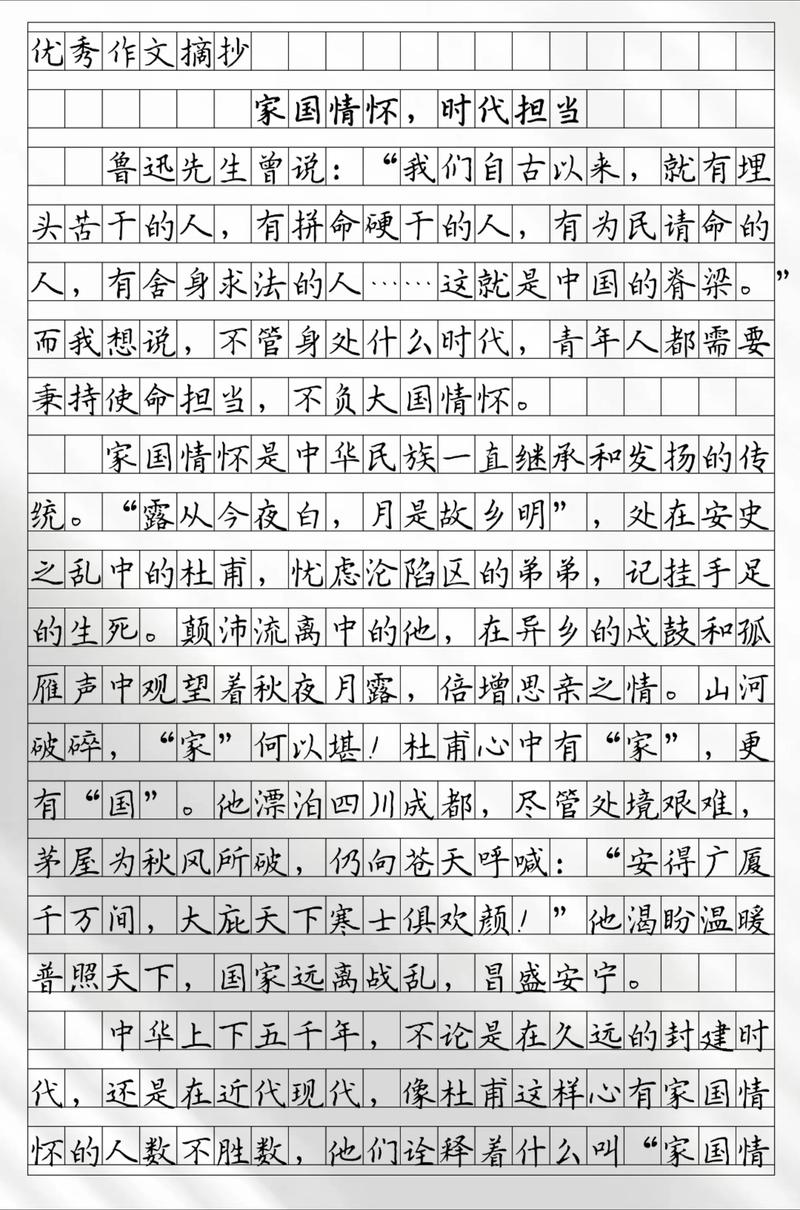 优秀作文摘抄
家国情怀，时代担当
鲁迅先生曾说：“我们自古以来，就有埋
头苦干的人，有拼命硬干的人，有为民请命的
人，有舍身求法的人……这就是中国的脊梁。”
而我想说，不管身处什么时代，青年人都需要
秉持使命担当，不负大国情怀。
家国情怀是中华民族一直继承和发扬的传
统。“露从今夜白，月是故乡明”，处在安史
之乱中的杜甫，忧虑沦陷区的弟弟，记挂手足
的生死。颠沛流离中的他，在异乡的戍鼓和孤
雁声中观望着秋夜月露，倍增思亲之情。山河
破碎，“家”何以堪！杜甫心中有“家”，更
有“国”。他漂泊四川成都，尽管处境艰难，
茅屋为秋风所破，仍向苍天呼喊：“安得广厦
千万间，大庇天下寒士俱欢颜！”他渴盼温暖
普照天下，国家远离战乱，昌盛安宁。
中华上下五千年，不论是在久远的封建时
代，还是在近代现代，像杜甫这样心有家国情
怀的人数不胜数，他们诠释着什么叫“家国情